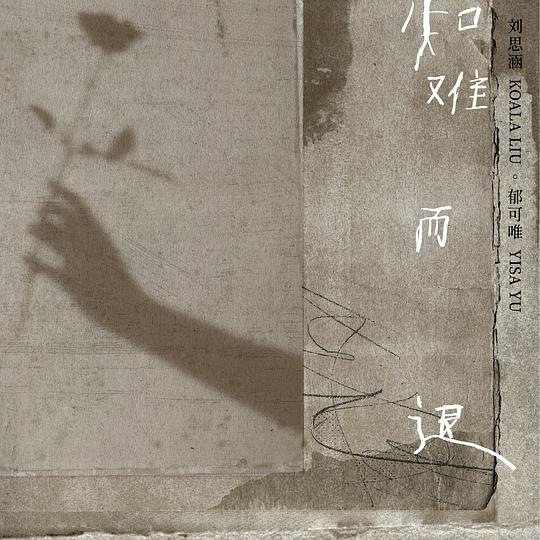 知难而退
刘思涵 KOALA LIU。郁可唯 YISA YU